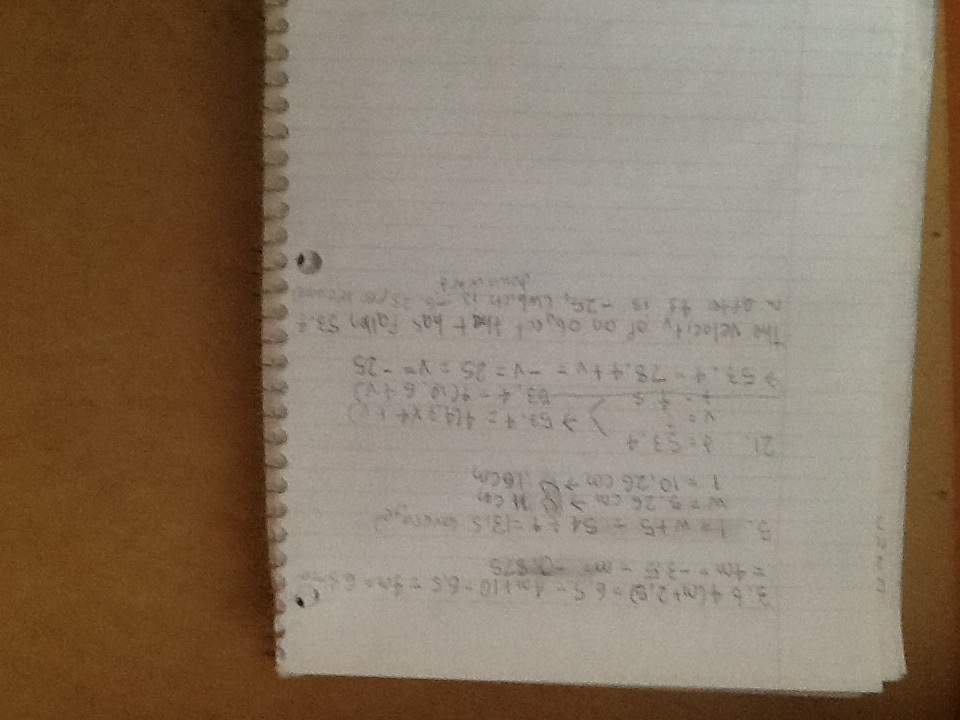 3. b 4(m+2.5) = 6.5 = 4m+10 = 6.5 = 4m = 6.5
= 4m = -3.5 = m = -0.875
5. l = w+5 = 54 ÷ 4 = 13.5 (average)
w = 5.26 cm → 11 cm
l = 10.26 cm → 16 cm
21. d = 53.4
v = ?
t = 4 s
→ 53.4 = 4(4.9x4 + v)
53.4 = 4(19.6 + v)
→ 53.4 = 78.4 + v = -v = 25 = v = -25
The velocity of an object that has fallen 53.4
m after 4s is -25, (which is -6.25 per second
downward